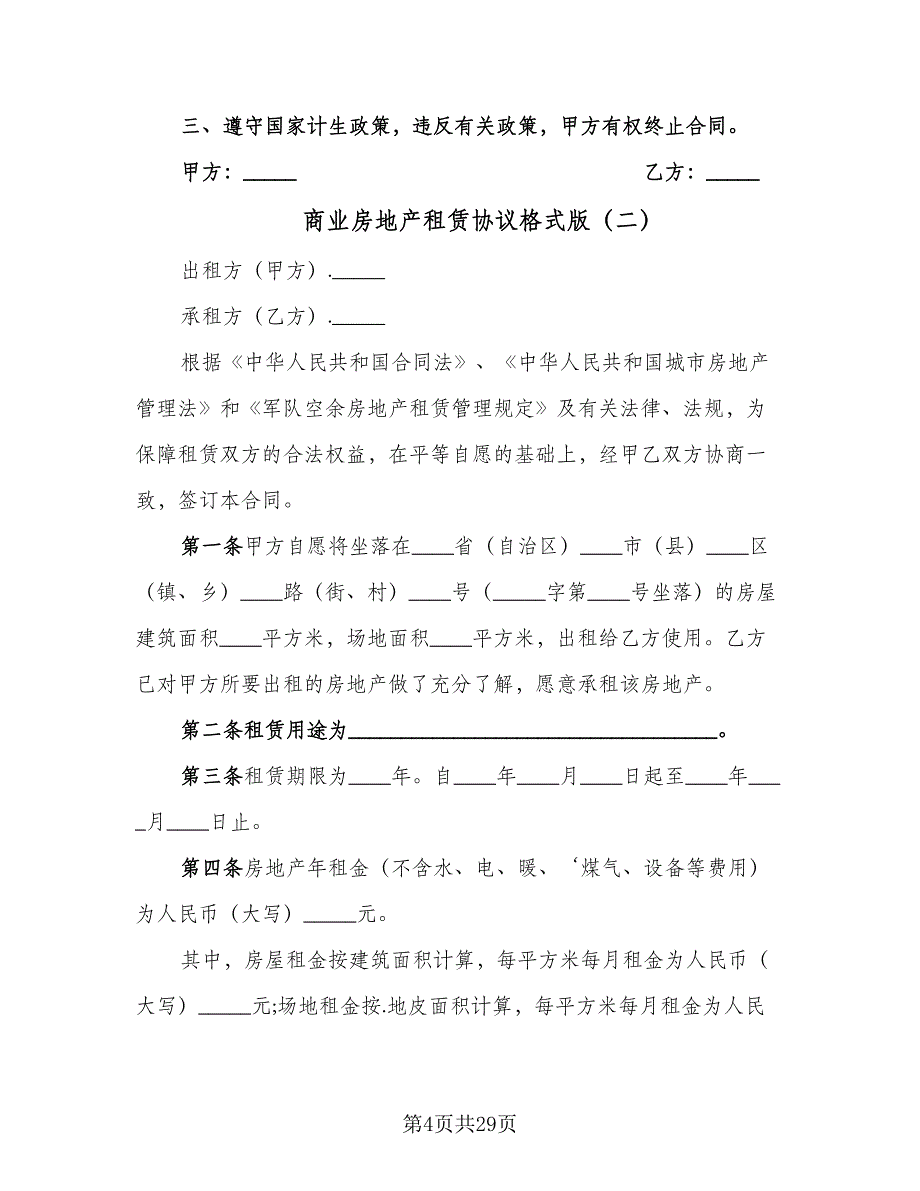 三、遵守国家计生政策，违反有关政策，甲方有权终止合同。
甲方：_____ 乙方：_____
商业房地产租赁协议格式版（二）
出租方（甲方）._____
承租方（乙方）._____
根据《中华人民共和国合同法》、《中华人民共和国城市房地产
管理法》和《军队空余房地产租赁管理规定》及有关法律、法规，为
保障租赁双方的合法权益，在平等自愿的基础上，经甲乙双方协商一
致，签订本合同。
第一条甲方自愿将坐落在____省（自治区）____市（县）____区
（镇、乡）____路（街、村）____号（_____字第____号坐落）的房屋
建筑面积____平方米，场地面积____平方米，出租给乙方使用。乙方
已对甲方所要出租的房地产做了充分了解，愿意承租该房地产。
第二条租赁用途为___________________________________。
第三条租赁期限为____年。自____年____月____日起至____年___
_月____日止。
第四条房地产年租金（不含水、电、暖、‘煤气、设备等费用）
为人民币（大写）_____元。
其中，房屋租金按建筑面积计算，每平方米每月租金为人民币（
大写）_____元;场地租金按.地皮面积计算，每平方米每月租金为人民
第4页共29页